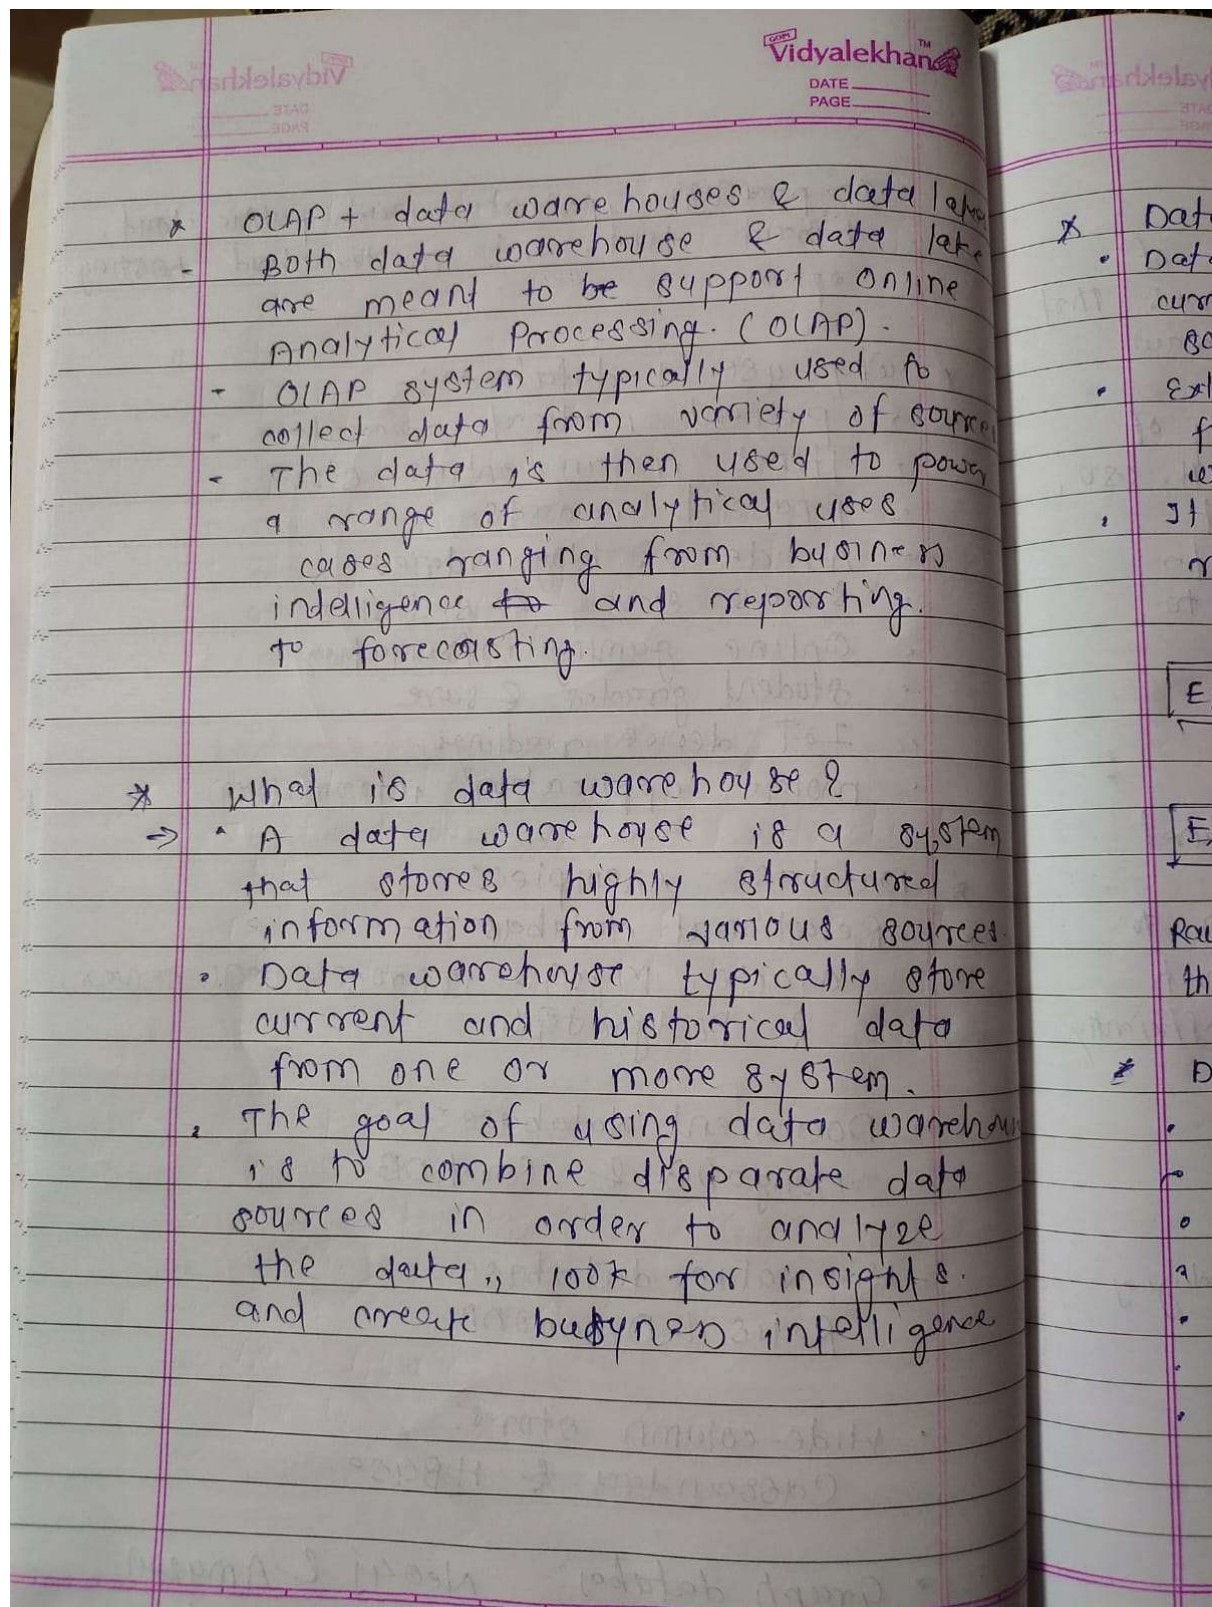 GOPI
Vidyalekhan™
DATE
PAGE
* OLAP + data warehouses & data lake
- Both data warehouse & data lake
are meant to be support online
Analytical Processing. (OLAP).
- OLAP system typically used to
collect data from variety of sources
- The data is then used to power
a range of analytical uses
cases ranging from business
intelligence to and reporting.
to forecasting.
* What is data warehouse?
⇒ • A data warehouse is a system
that stores highly structured
information from various sources.
• Data warehouse typically store
current and historical data
from one or more system.
• The goal of using data warehou
is to combine disparate data
sources in order to analyze
the data,, look for insights.
and create busyness intelligence
* Dat
• Dat
curr
so
• Ext
f
• It
E
E
Raw
th
* D